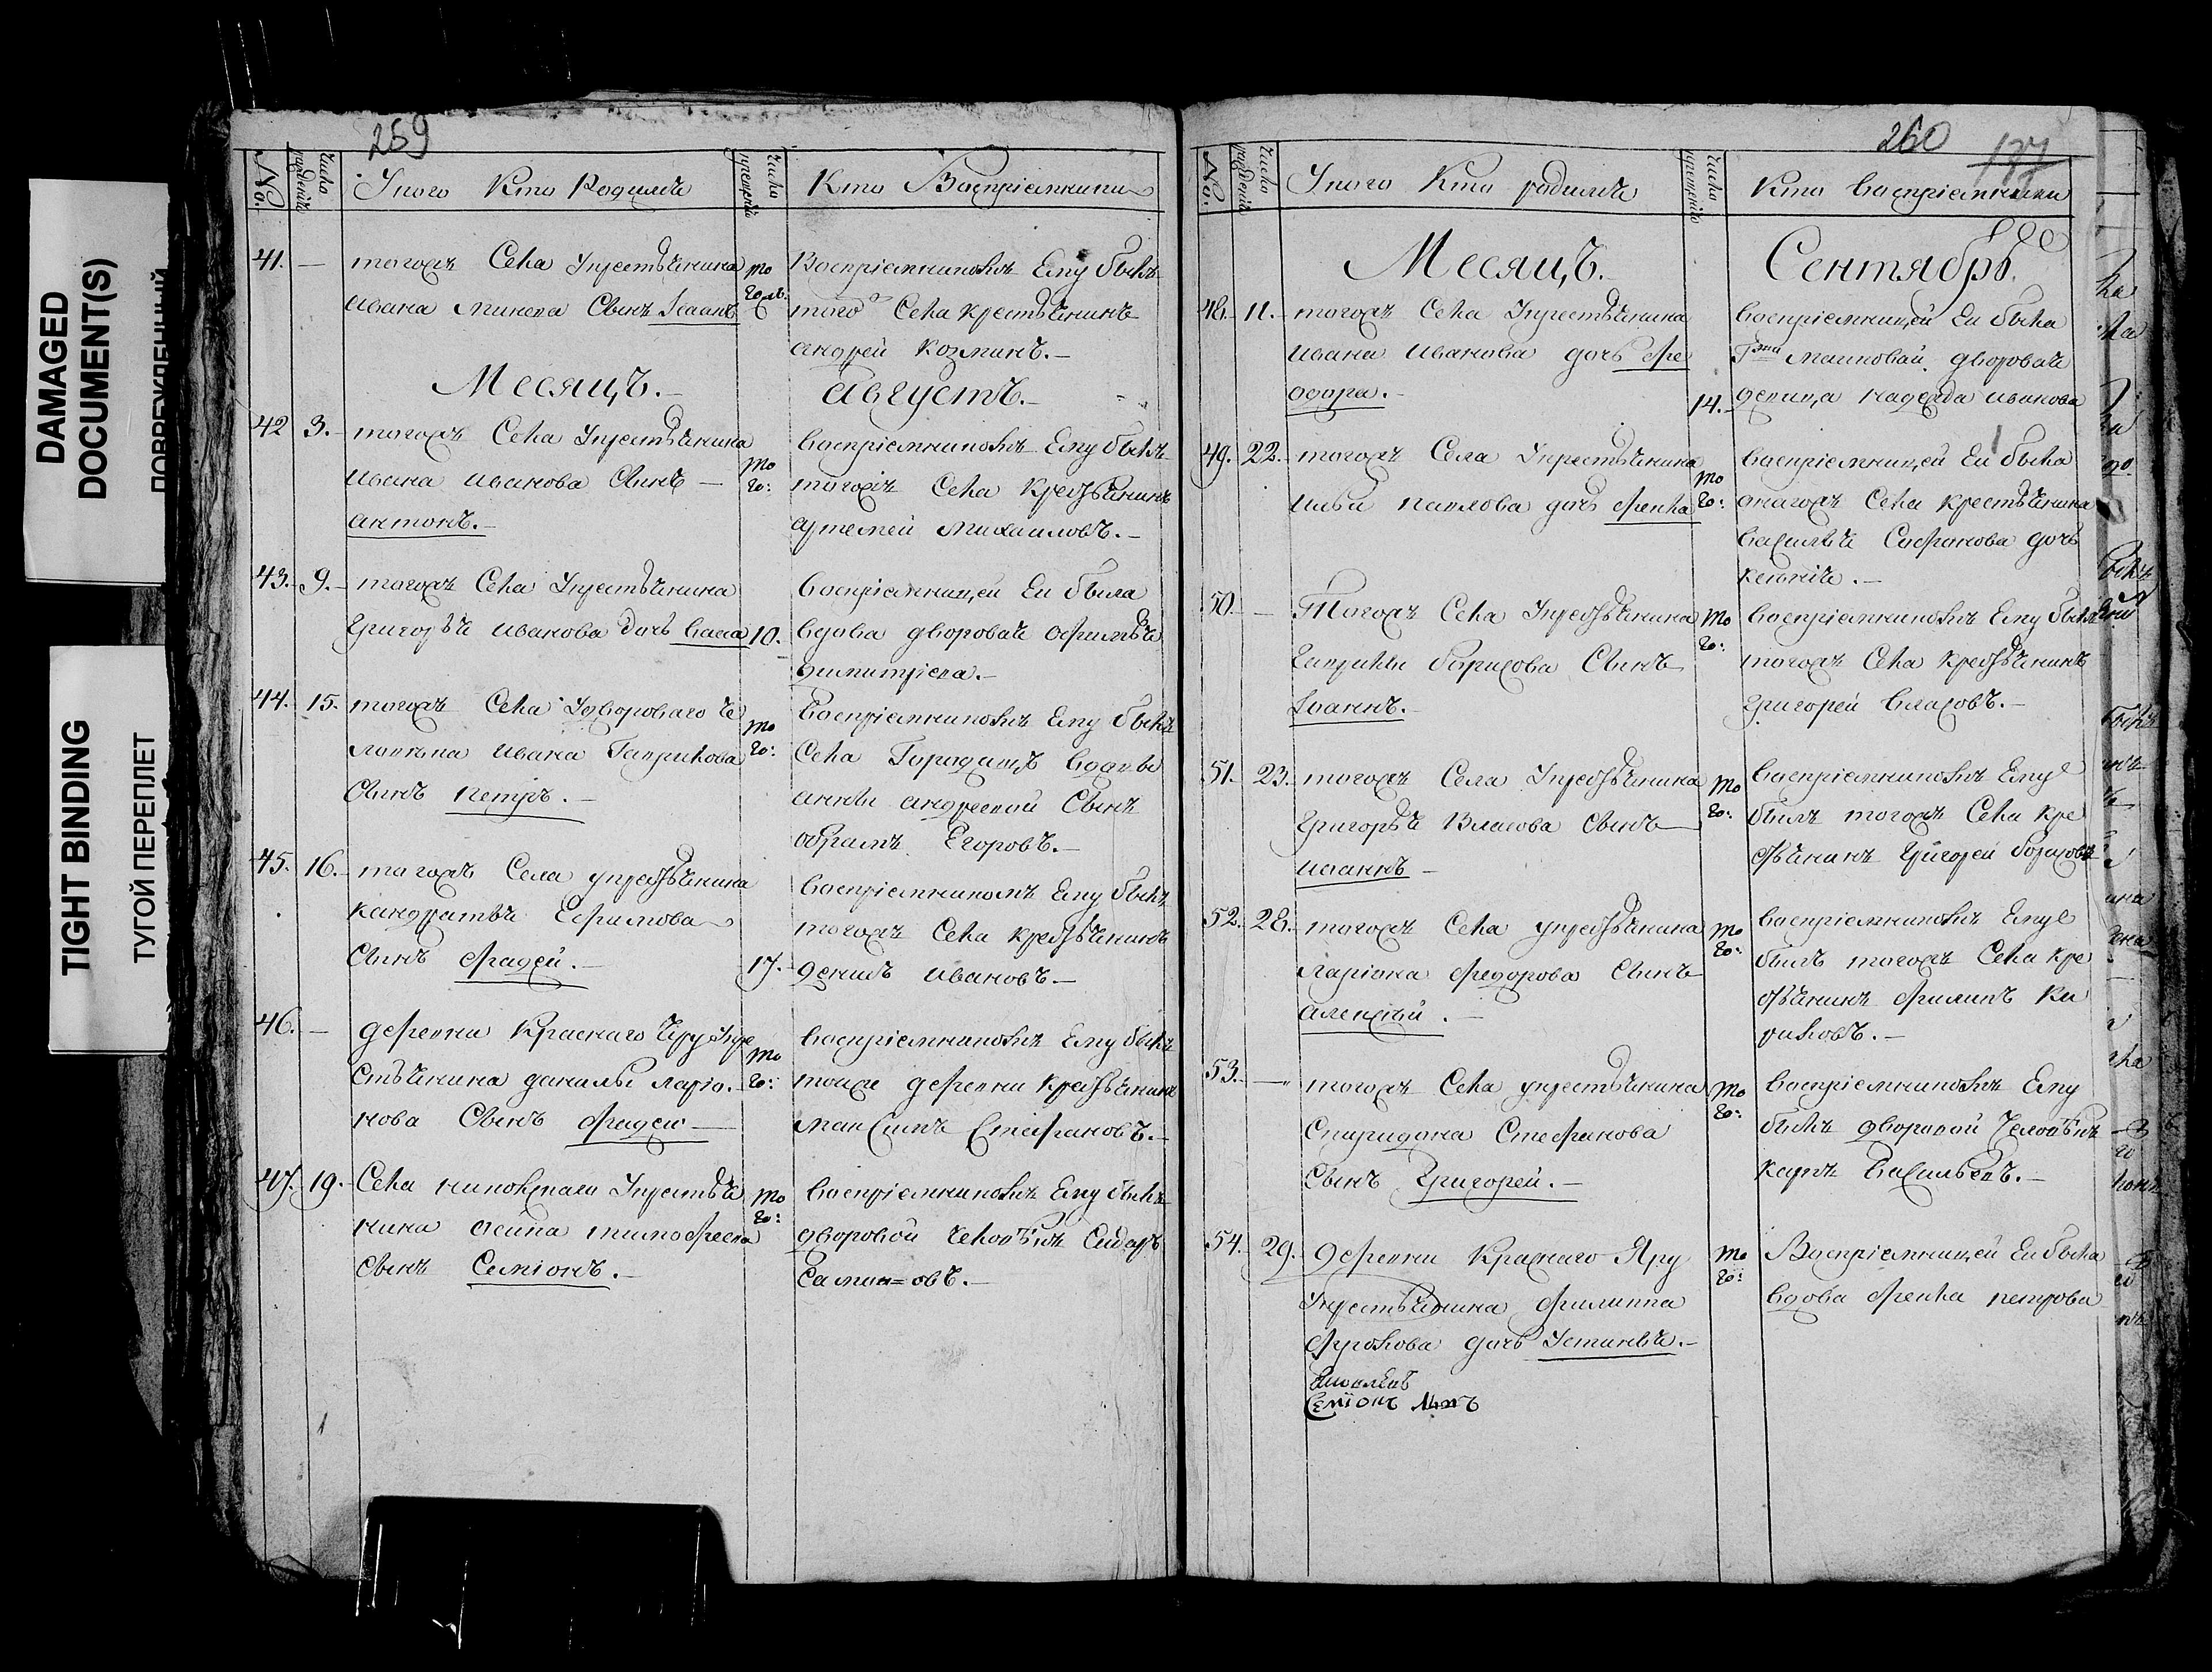 DAMAGED
DOCUMENT(S)
TIGHT BINDING
ТУГОЙ ПЕРЕПЛЕТ
259
№
Число рождений
У кого Кто Родился
Число крещений
Кто Восприемники
41. —
тогожъ Села Укрестьянина
Ивана Минеева Сынъ Іоаннъ
того жъ
Восприемникомъ Ему былъ
того Села крестьянинъ
андрей Козминъ. —
Месяцъ. — августъ. —
42 3. —
тогожъ Села Укрестьянина
Ивана Иванова Сынъ —
антонъ. —
то го:
восприемникомъ Ему былъ
тогожъ Села Крестьянинъ
артемей Михаиловъ. —
43. 9. —
тогожъ Села Укрестьянина
Григорья Иванова дочь васа
10.
восприемницей Еи была
вдова дворовая Офимья
димитриева. —
44. 15.
тогожъ Села Удвороваго че
ловека Ивана Гаврилова
Сынъ петръ. —
то го:
восприемникомъ Ему былъ
Села Городищъ вдовы
анны андреевой Сынъ
обрамъ Егоровъ. —
45. 16. —
тогожъ Села укрестьянина
кандратья Ефимова
Сынъ фадей. —
17. —
восприемникомъ Ему былъ
тогожъ Села крестьянинъ
денисъ Ивановъ. —
46. —
деревни Краснаго Яру Укре
стьянина данилы ларіо. —
нова Сынъ Фадеи —
то го:
восприемникомъ Ему былъ
тоиже деревни крестьянинъ
максимъ Стефановъ. —
47. 19. —
Села никольскаго Укрестья
нина осипа тимофеева
Сынъ Семіонъ. —
то го:
восприемникомъ Ему былъ
дворовой человѣкъ Сидоръ
Самси=овъ. —
260 177
№
Число рождений
У кого Кто родился
Число крещений
Кто восприемники
Месяцъ. — Сентябрь.
48. 11. —
тогожъ Села Укрестьянина
Ивана Иванова дочь фе
одора. —
14. —
восприемницей Еи была
Гжи Маиковой дворовая
девица надежда Иванова
49. 22. —
тогожъ Села Укрестьянина
Ильи павлова дочь фекла
то го:
восприемницей Еи была
онагожъ Села крестьянина
василья Сафонова дочь
ксения. —
50. —
Тогожъ Села Укрестьянина
Гаврилы борисова Сынъ
Іоаннъ. —
то го:
восприемникомъ Ему былъ
тогожъ Села крестьянинъ
Григорей власовъ. —
51. 23. —
тогожъ Села Укрестьянина
Григорья Власова Сынъ —
Иоаннъ —
то го:
восприемникомъ Ему
былъ тогожъ Села кре
стьянинъ Григорей борисовъ
52. 28. —
тогожъ Села укрестьянина
ларіона федорова Сынъ
алексѣй. —
то го:
восприемникомъ Ему
былъ тогожъ Села кре
стьянинъ филипъ Ки
риловъ. —
53. —
тогожъ Села укрестьянина
Спиридона Стефанова
Сынъ Григорей. —
то го:
восприемникомъ Ему
былъ дворовой человѣкъ
карпъ васильевъ. —
54. 29. —
деревни Краснаго Яру
Укрестьянина филиппа
фролова дочь Устинья. —
то го:
Восприемницей Еи была
вдова Фекла петрова
Семіонъ